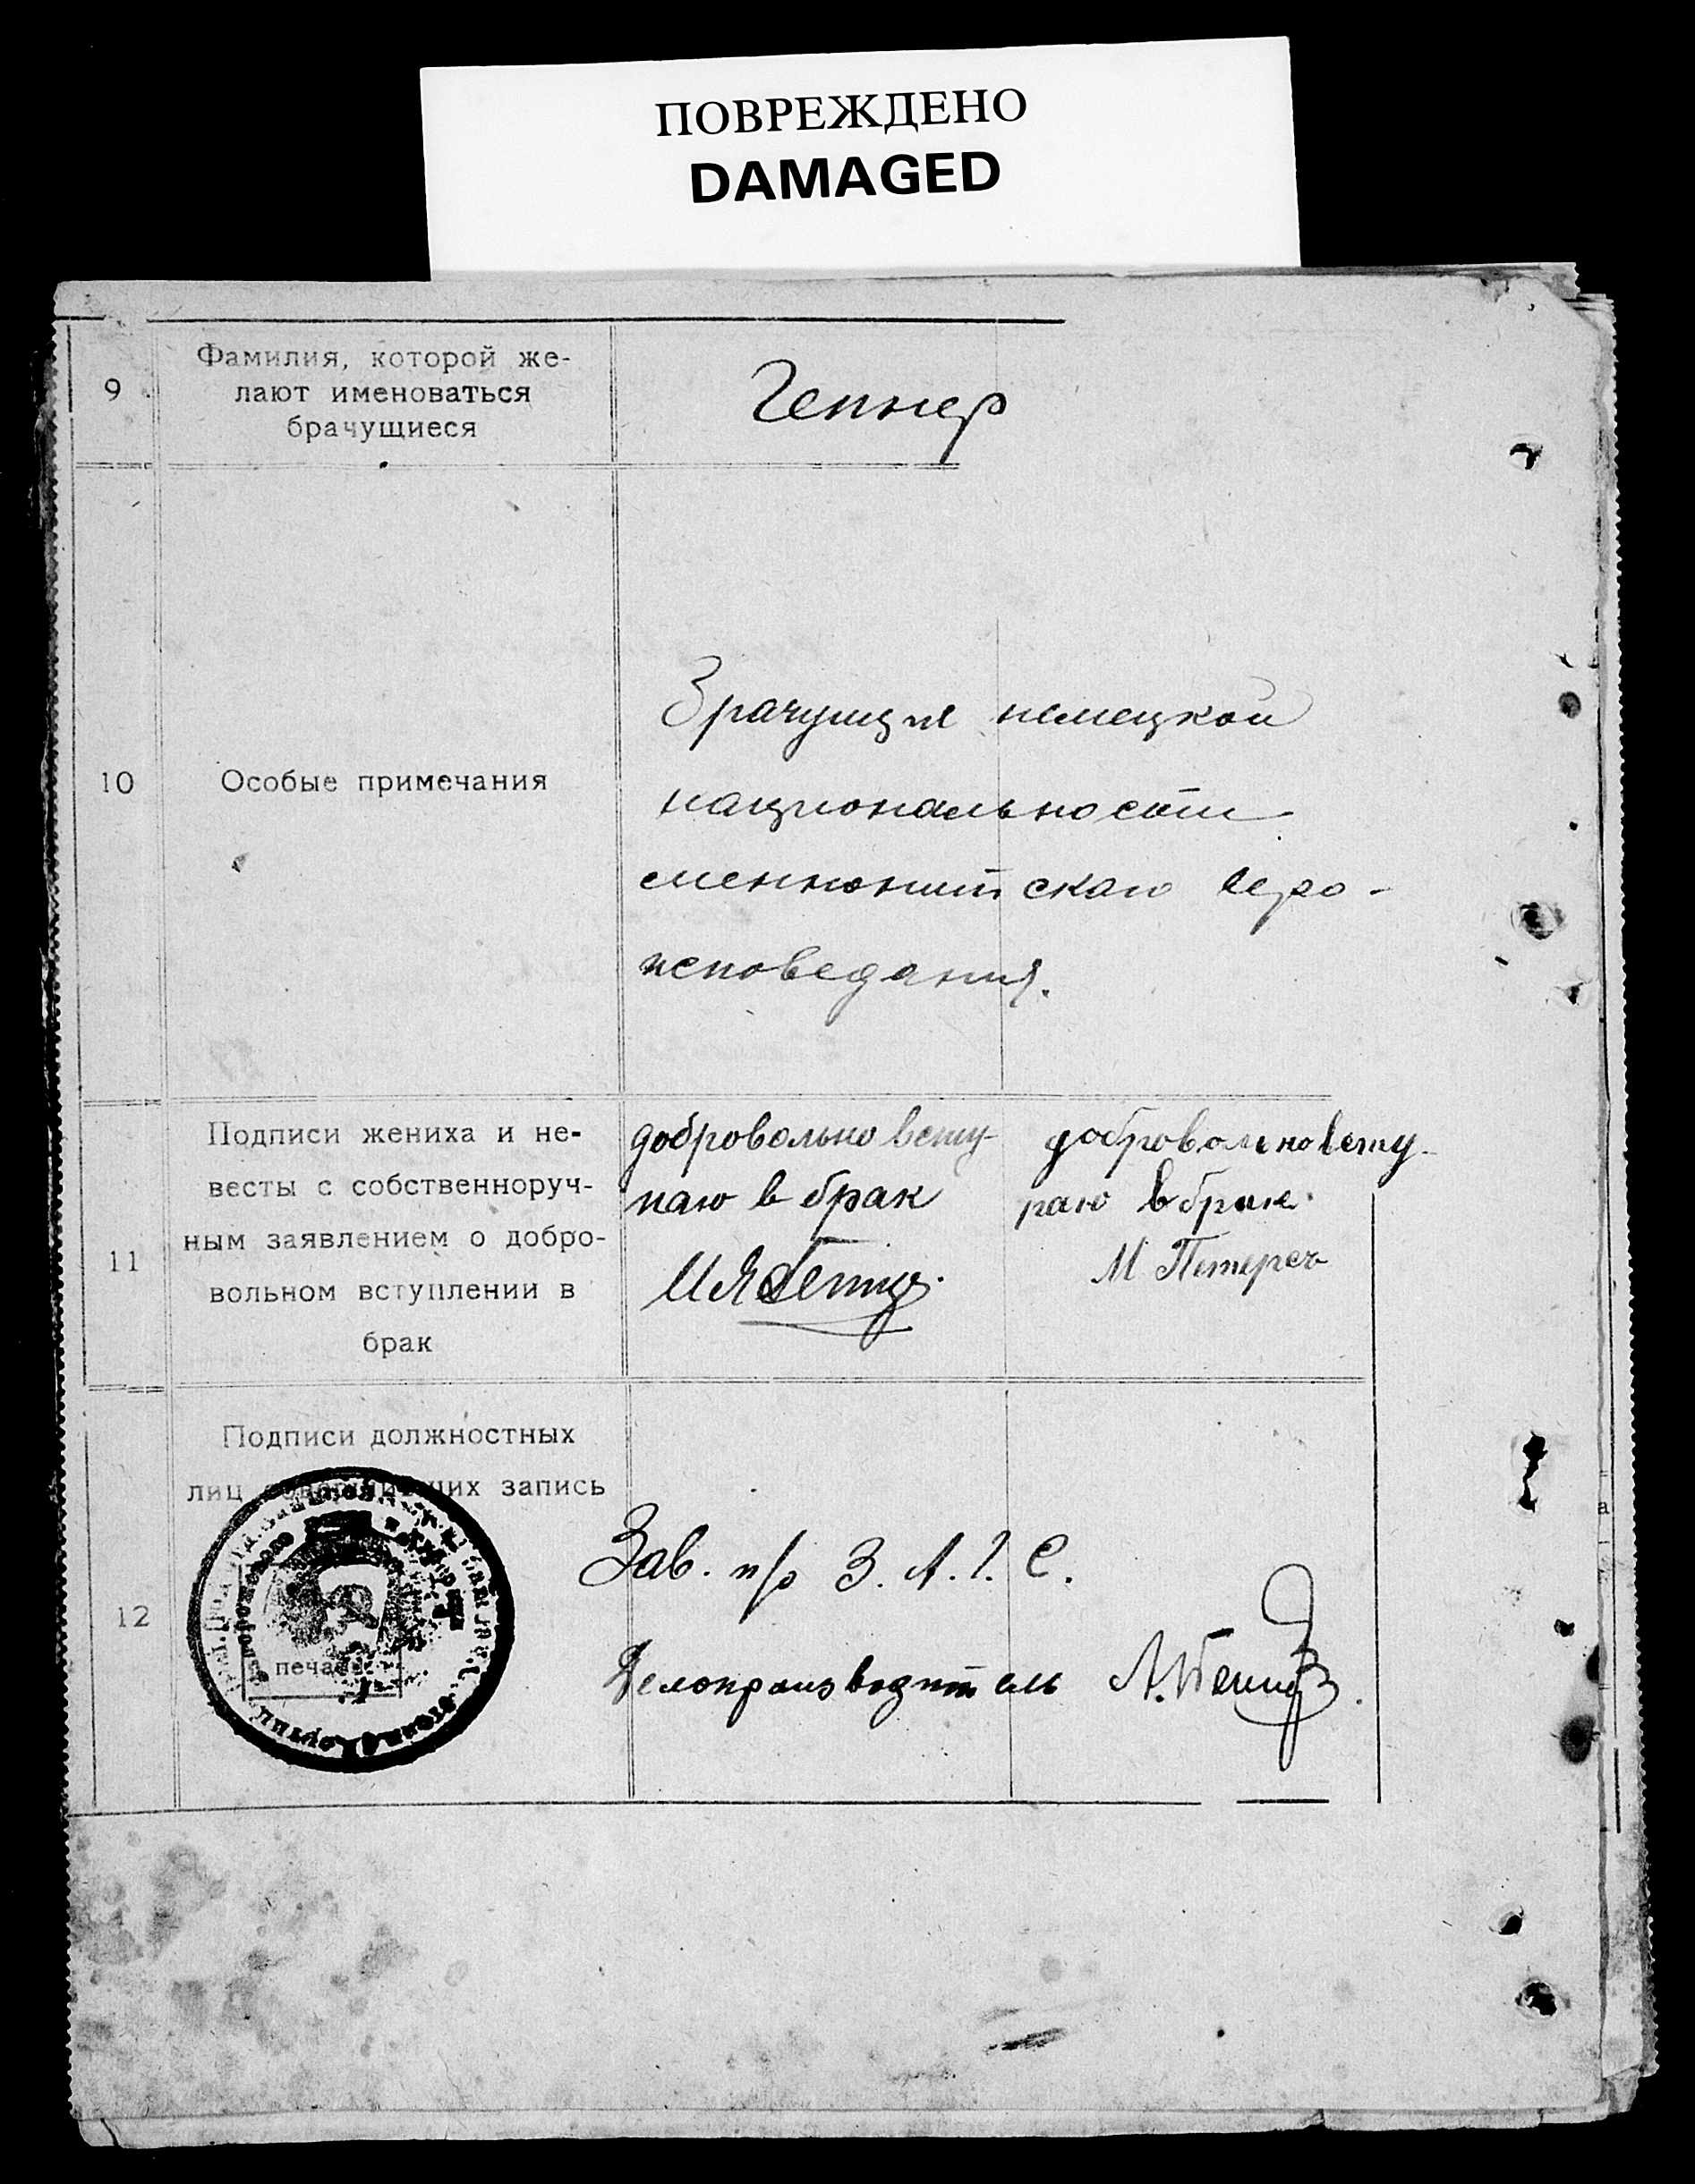 ПОВРЕЖДЕНО
DAMAGED
9
Фамилия, которой же-
лают именоваться
брачущиеся
Геппер
10
Особые примечания
Брачущие немецкой
национальности
сменнонитскаго веро-
исповедания.
11
Подписи жениха и не-
весты с собственноруч-
ным заявлением о добро-
вольном вступлении в
брак
добровольно всту-
паю в брак
добровольно всту-
паю в брак.
М Петерс
12
Подписи должностных
лиц совершивших запись
печать
Зав. п/о З. А. Г. С.
Делопроизводитель